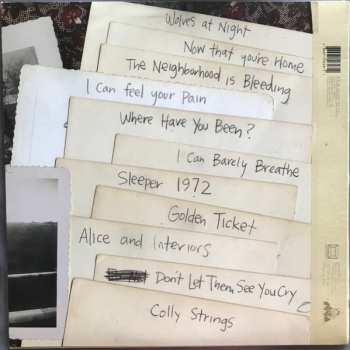 Wolves at Night
Now that you're Home
The Neighborhood is Bleeding
I can feel your Pain
Where Have You Been?
I Can Barely Breathe
Sleeper 1972
Golden Ticket
Alice and Interiors
Don't Let Them See You Cry
Colly Strings